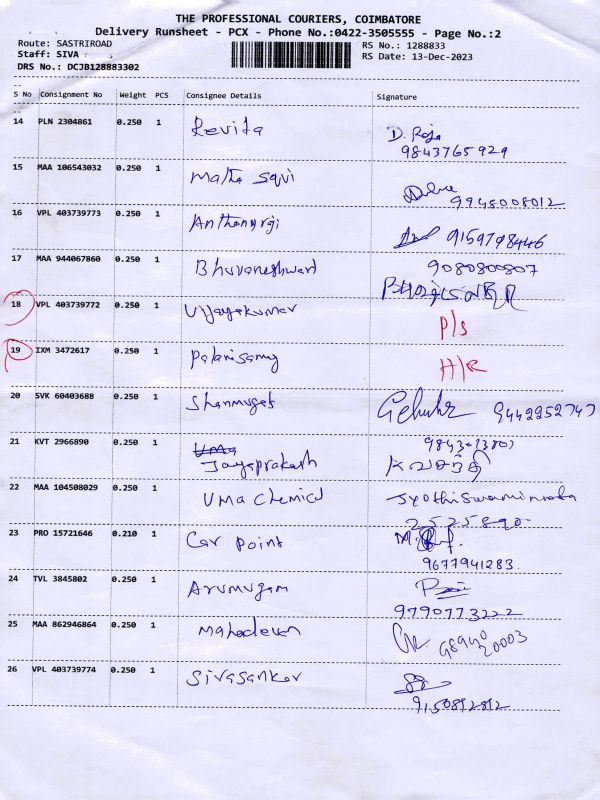 THE PROFESSIONAL COURIERS, COIMBATORE
Delivery Runsheet - PCX - Phone No.:0422-3505555 - Page No.:2
Route: SASTRIROAD RS No.: 1288833
Staff: SIVA RS Date: 13-Dec-2023
DRS No.: DCJB128883302
S No Consignment No Weight PCS Consignee Details Signature
14 PLN 2304861 0.250 1 Revita D. Roja
9843765929
15 MAA 106543032 0.250 1 Malta Sqvi
9945008012
16 VPL 403739773 0.250 1 Anthonyrgi 9159798446
17 MAA 944067860 0.250 1 Bhuvaneshwari 9080800807
18 VPL 403739772 0.250 1 Vijayakumar P/s
19 IXM 3472617 0.250 1 Palanisamy H/R
20 SVK 60403688 0.250 1 Shanmugat 9442252747
21 KVT 2966890 0.250 1 Uma
Jayaprakash
22 MAA 104508029 0.250 1 Uma Chemical
2525890
23 PRO 15721646 0.210 1 Car Point
9677941283.
24 TVL 3845802 0.250 1 Arumugam
9790773222
25 MAA 862946864 0.250 1 Mahadevan
26 VPL 403739774 0.250 1 Sivasankar
9150892812